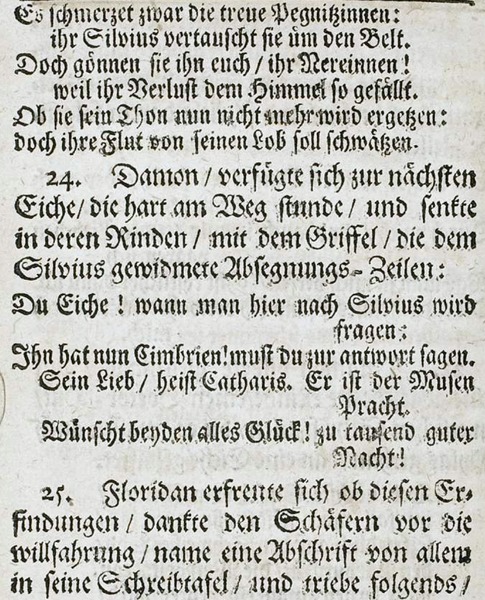 Es schmerzet zwar die treue Pegnitzinnen:
ihr Silvius vertauscht sie üm den Belt.
Doch gönnen sie ihn euch / ihr Nereinnen!
weil ihr Verlust dem Himmel so gefällt.
Ob sie sein Thon nun nicht mehr wird ergetzen:
doch ihre Flut von seinen Lob soll schwätzen.
24. Damon / verfügte sich zur nächsten
Eiche / die hart am Weg stunde / und senkte
in deren Rinden / mit dem Griffel / die dem
Silvius gewidmete Absegnungs-Zeilen:
Du Eiche! wann man hier nach Silvius wird
fragen:
Ihn hat nun Cimbrien! must du zur antwort sagen.
Sein Lieb / heist Catharis. Er ist der Musen
Pracht.
Wünscht beyden alles Glück! zu tausend guter
Nacht!
25. Floridan erfreute sich ob diesen Er-
findungen / dankte den Schäfern vor die
willfahrung / name eine Abschrift von allem
in seine Schreibtafel / und triebe folgends /